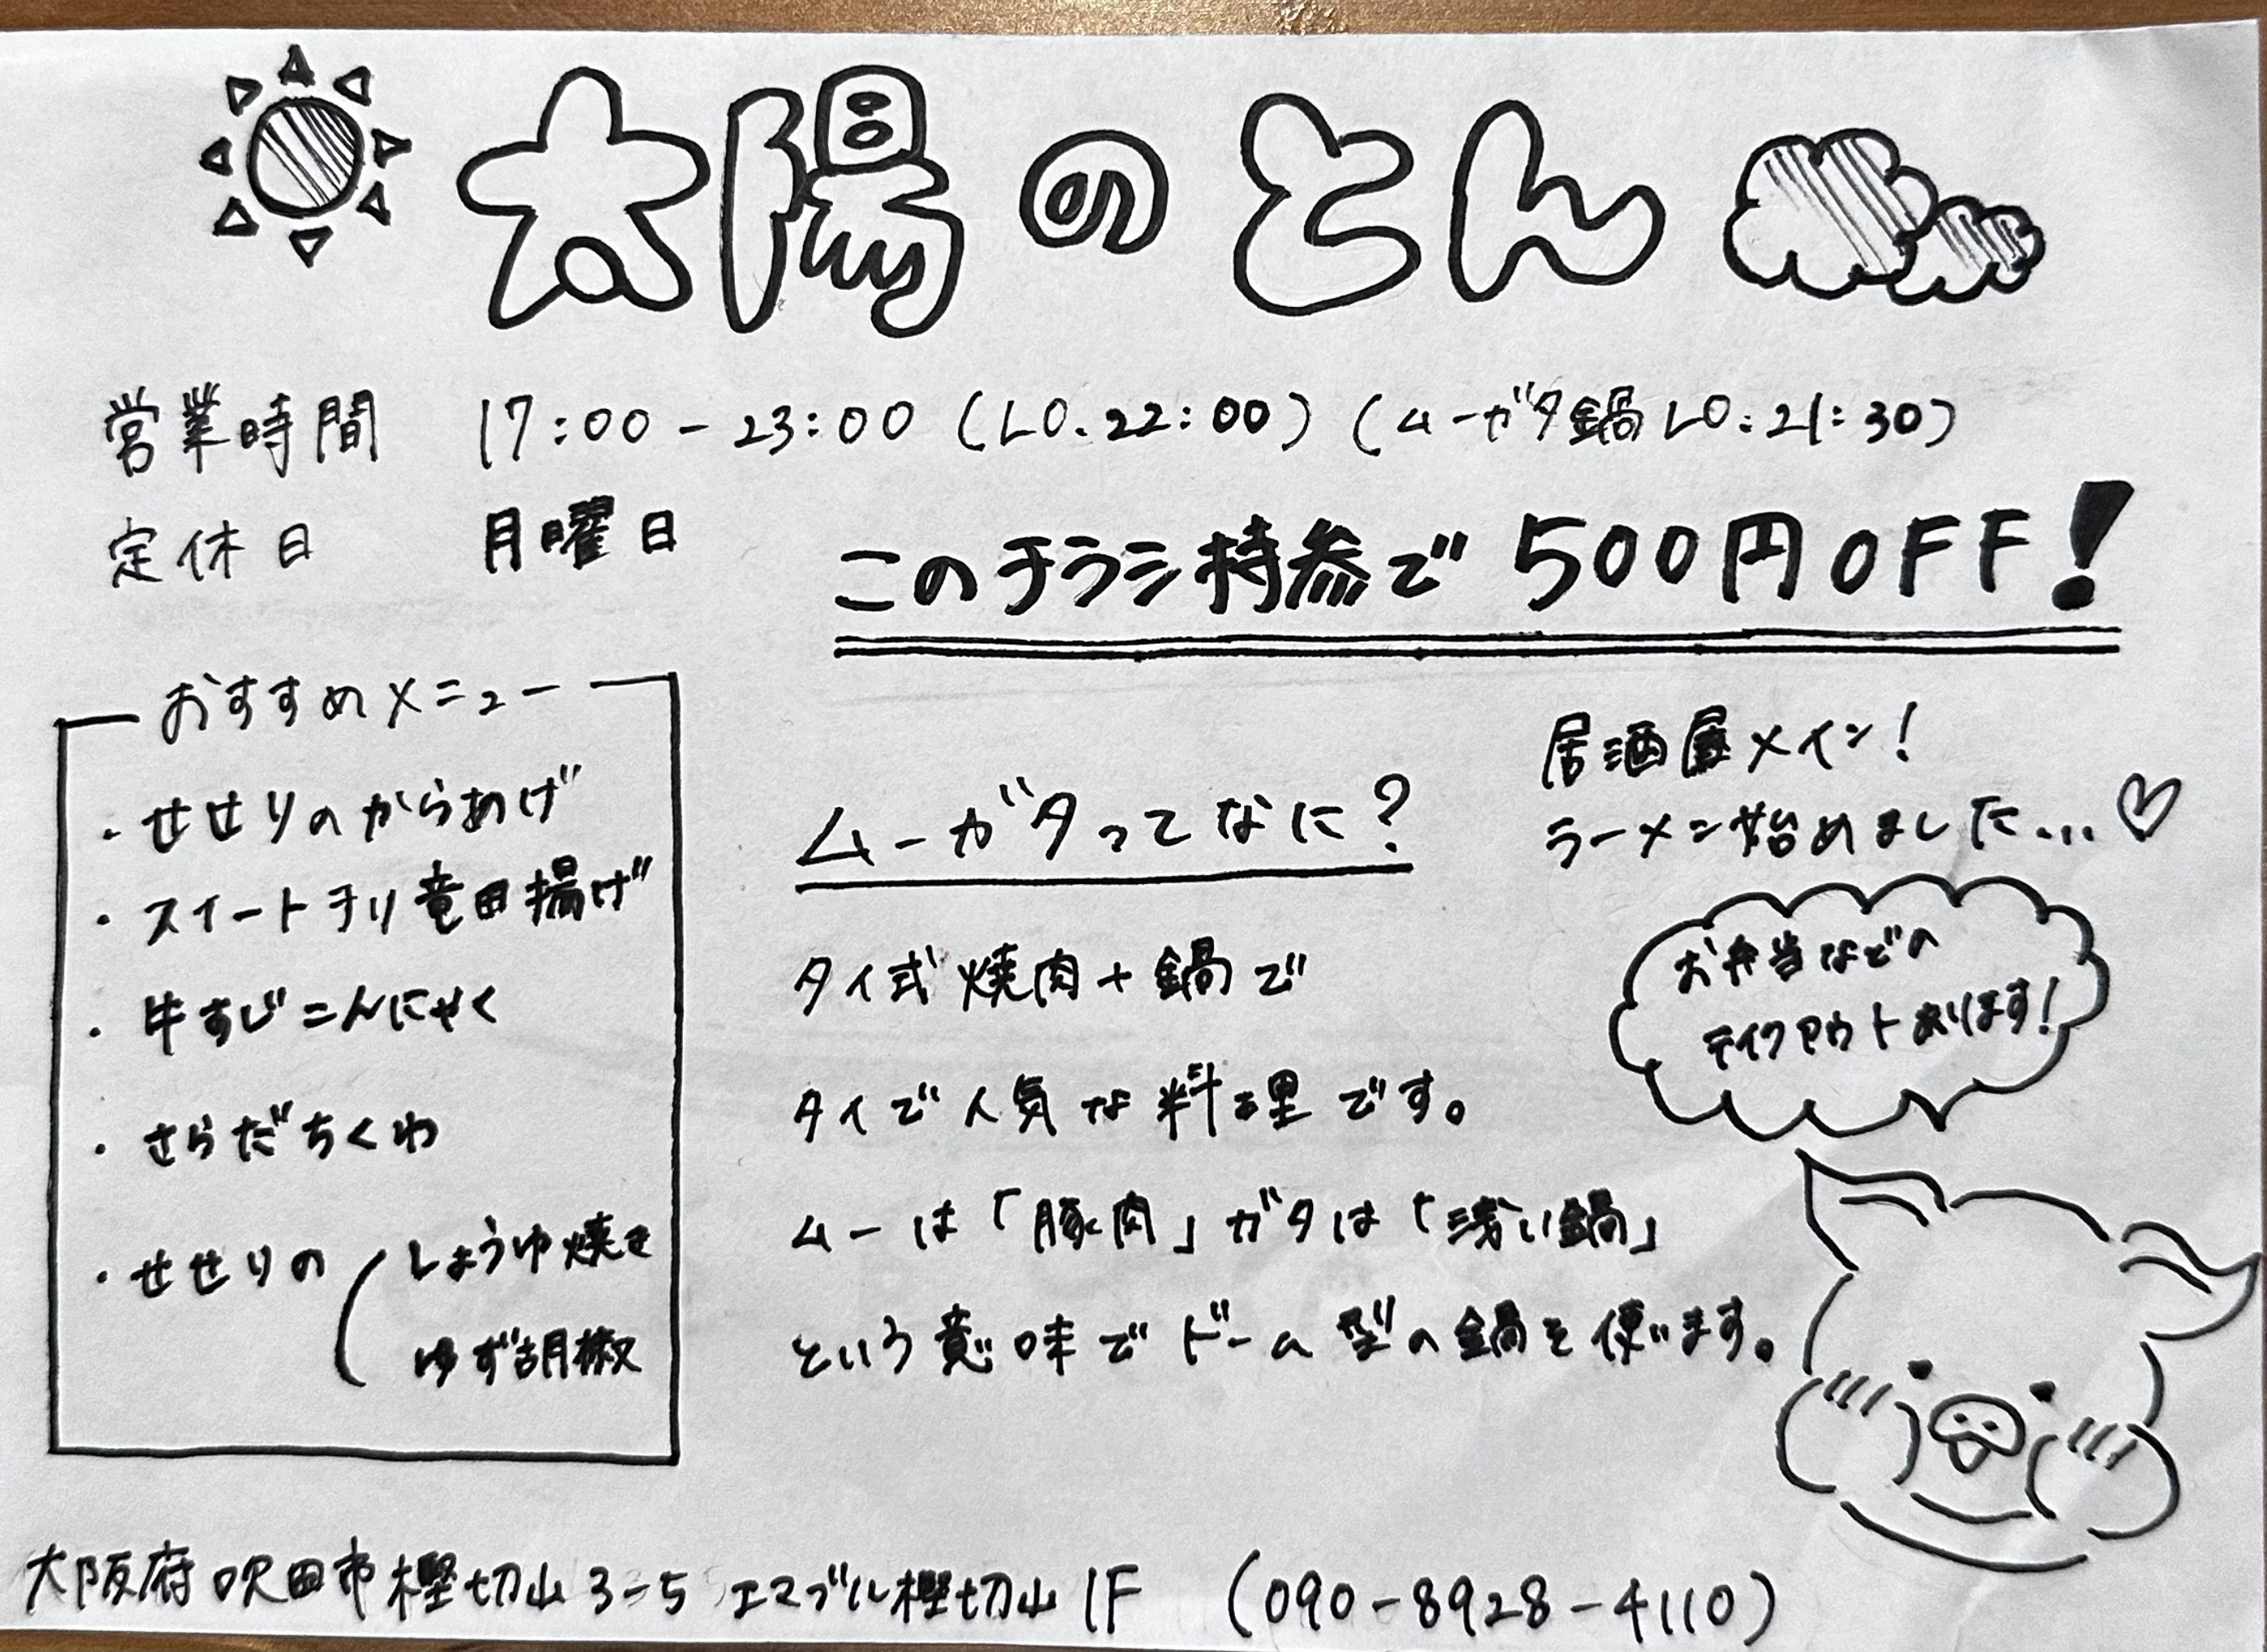 太陽のとん
営業時間 17:00-23:00 (LO.22:00) (ムーガタ鍋LO.21:30)
定休日 月曜日
このチラシ持参で500円OFF!
おすすめメニュー
・せせりのからあげ
・スイートチリ竜田揚げ
・牛すじこんにゃく
・さらだちくわ
・せせりの(しょうゆ焼き
ゆず胡椒
ムーガタってなに?
タイ式焼肉+鍋で
タイで人気な料理です。
ムーは「豚肉」ガタは「浅い鍋」
という意味でドーム型の鍋を使います。
居酒屋メイン!
ラーメン始めました...♡
お弁当などの
テイクアウトあります!
大阪府吹田市樫切山3-5 エマブル樫切山1F (090-8928-4110)